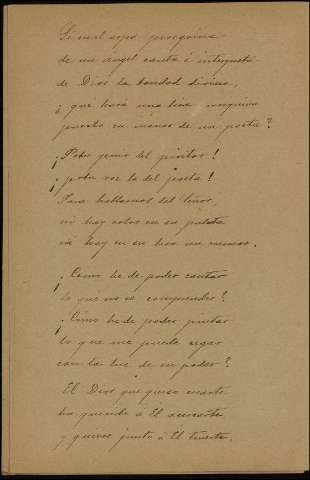 Si en el arpa peregrina
de un ángel canta é interpreta
de Dios la bondad divina,
¿qué hará una lira mezquina
puesta en manos de un poeta?
¡Pobre genio del pintor!
¡pobre voz la del poeta!
Para hablarnos del Señor,
ni hay color en su paleta
ni hay en su lira un rumor.
¿Cómo he de poder cantar
lo que no sé comprender?
¿Cómo he de poder pintar
lo que me puede cegar
con la luz de su poder?
El Dios que quiso
ha querido á Él
y quiere junto á Él